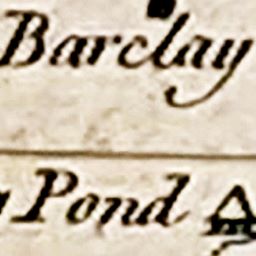 Barclay
Pond